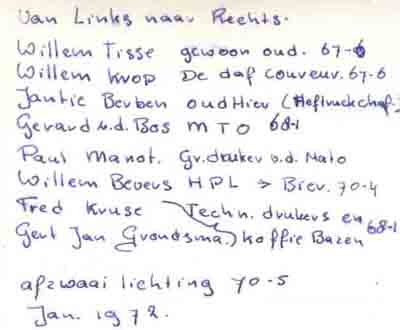 Van Links naar Rechts.
Willem Tisse gewoon oud. 67-6
Willem Knop De daf couveur. 67-6
Jantie Berben oud Hier (Heftruckchaf.)
Gerard v.d. Bos MTO 68-1
Paul Manot. Gr. drukker v.d. Nato
Willem Bevers HPL > Bier. 70-4
Fred Kruse Techn. drukers en 68-1
Gert Jan Grondsma. ) koffie Bazen
afzwaai lichting 70-5
Jan. 1972.